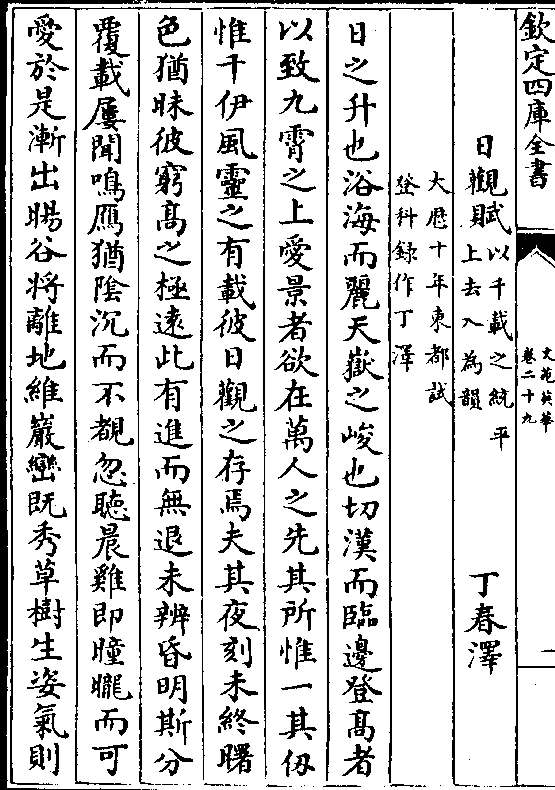 欽定四庫全書
文苑英華
卷二十九
一
日觀賦以千載之統平
上去入為韻
丁春澤
大厯十年東都試
登科録作丁澤
日之升也浴海而麗天嶽之峻也切漢而臨邊登髙者
以致九霄之上愛景者欲在萬人之先其所惟一其仭
惟千伊風靈之有載彼日觀之存焉夫其夜刻未終曙
色猶昧彼窮髙之極逺此有進而無退未辨昏明斯分
覆載屢聞鳴鴈猶陰沉而不覩忽聴晨雞即曈曨而可
愛於是漸出暘谷將離地維巖巒既秀草樹生姿氣則